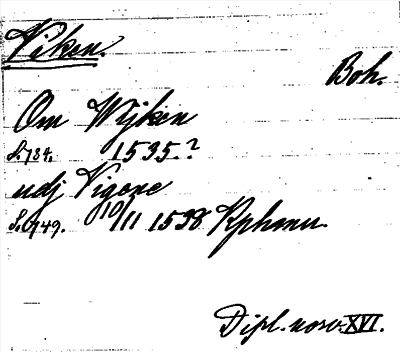 Viken.
Boh.
Om Wijken
S. 734. 1535.?
udj Vigene
S. 749. 10/11 1538 Kphmn.
Dipl. norv. XVI.